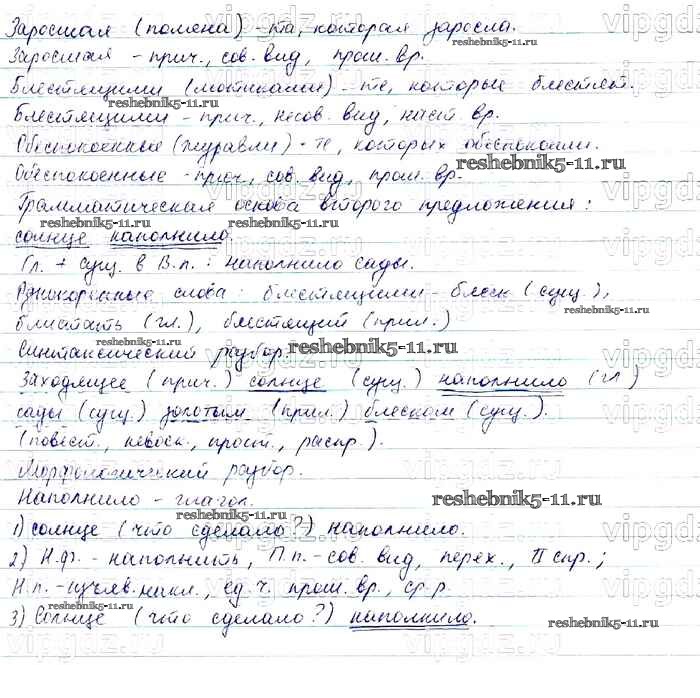 Заросшая (поляна) - та, которая заросла.
Заросшая - прич., сов. вид, прош. вр.
Блестящими (мотиками) - те, которые блестят.
Блестящими - прич., несов. вид, наст. вр.
Обеспокоенные (журавли) - те, которых обеспокоили.
Обеспокоенные - прич., сов. вид, прош. вр.
Грамматическая основа второго предложения:
солнце наполнило.
Гл. + сущ. в В.п.: наполнило сады.
Однокоренные слова: блестящими - блеск (сущ.),
блистать (гл.), блестящий (прил.)
Синтаксический разбор.
Заходящее (прич.) солнце (сущ.) наполнило (гл.)
сады (сущ.) золотым (прил.) блеском (сущ.).
(повест., невоск., прост., распр.).
Морфологический разбор.
Наполнило - глагол.
1) солнце (что сделало?) наполнило.
2) Н.ф. - наполнить, П.п. - сов. вид, перех., II спр.;
Н.п. - изъяв. накл., ед.ч. прош. вр., ср.р.
3) Солнце (что сделало?) наполнило.
reshebnik5-11.ru
vipgdz.ru